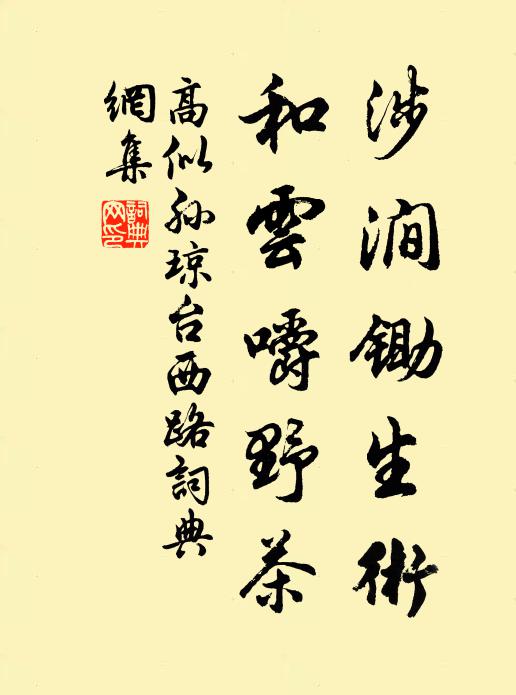 涉澗鋤生術
和雲嚼野茶
高似孙琼台西路詞典
網集
詞典
网印